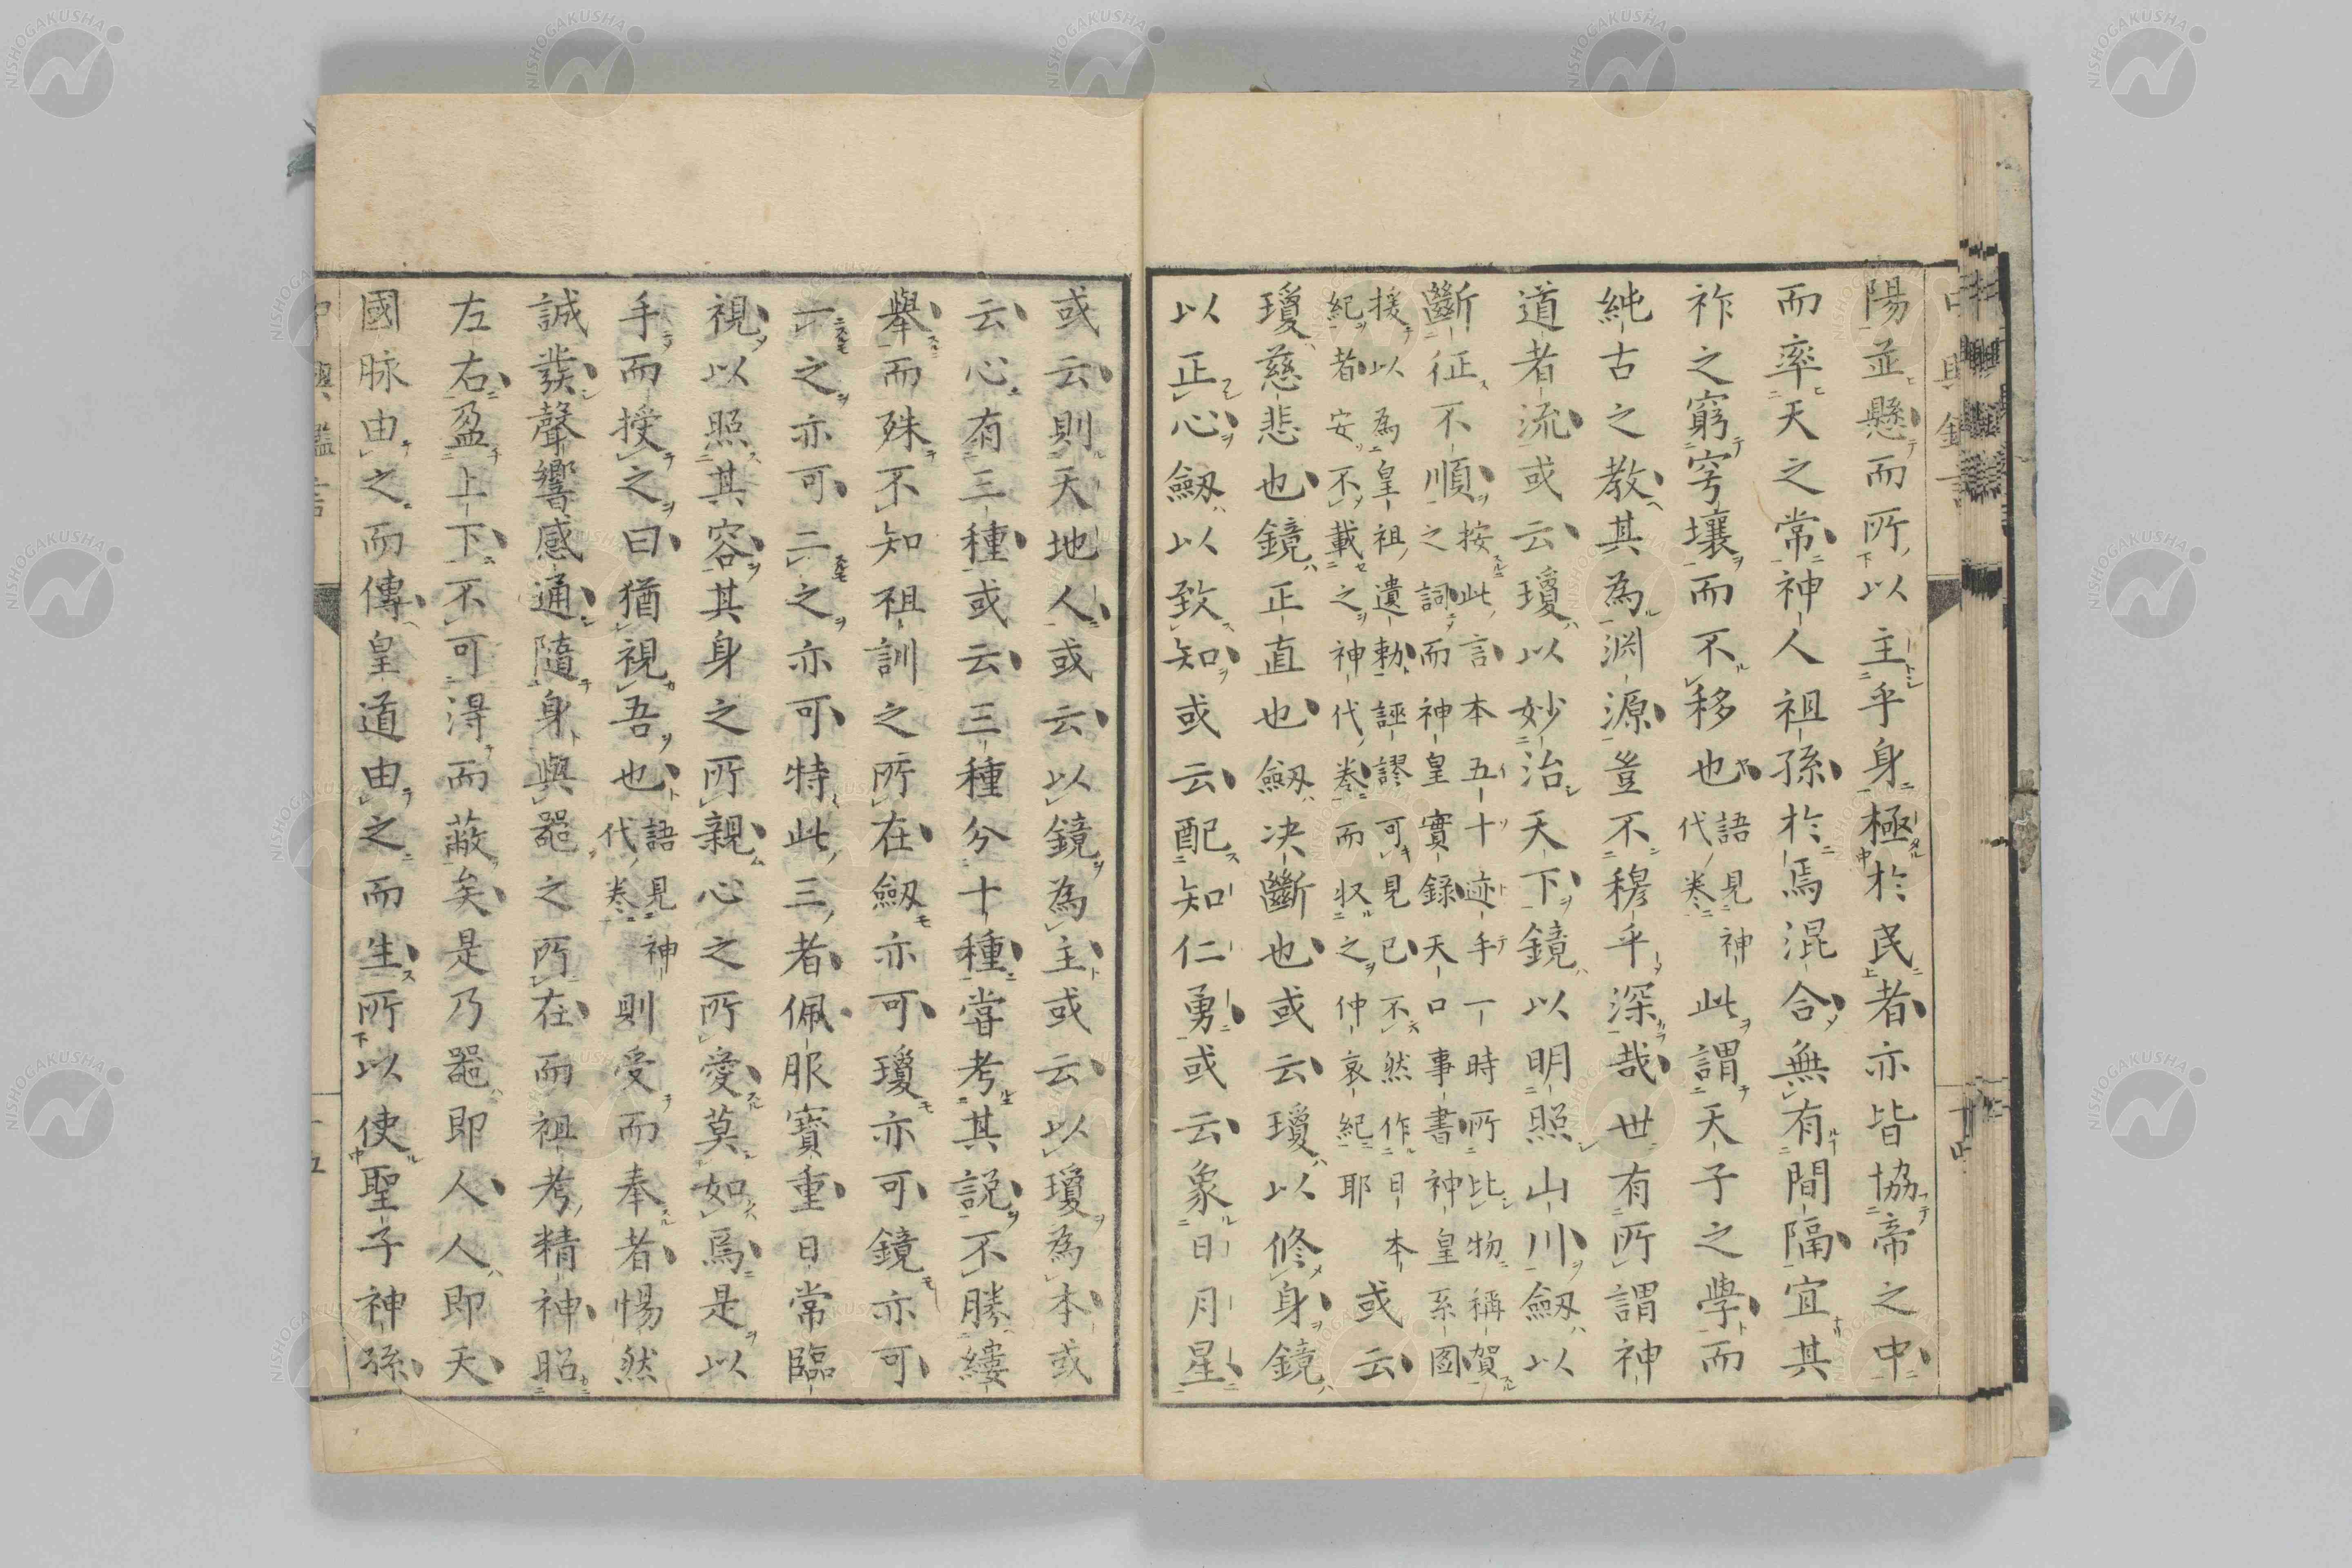 陽並懸而所以主乎身極於民者亦皆協帝之中
而率天之常神人祖孫於焉混合無有間隔宜其
祚之窮穹壤而不移也語見神代卷此謂天子之學而
純古之教其為淵源豈不穆乎深哉世有所謂神
道者流或云瓊以妙治天下鏡以明照山川劒以
斷征不順按此言本五十迹手一時所比物稱賀
之詞而神皇實錄天口事書神皇系圖
援以為皇祖遺勅誣謬可見已不然作日本
紀者安不載之神代卷而収之仲哀紀耶或云
瓊慈悲也鏡正直也劒决斷也或云瓊以修身鏡
以正心劒以致知或云配知仁勇或云象日月星
或云則天地人或云以鏡為主或云以瓊為本或
云心有三種或云三種分十種嘗考其説不勝縷
舉而殊不知祖訓之所在劒亦可瓊亦可鏡亦可
一之亦可二之亦可特此三者佩服寶重日常臨
視以照其容其身之所親心之所愛莫如焉是以
手而授之曰猶視吾也語見神代卷則受而奉者惕然
誠發聲響感通隨身與器之所在而祖考精神昭
左右盈上下不可得而蔽矣是乃器即人人即天
國脉由之而傳皇道由之而生所以使聖子神孫